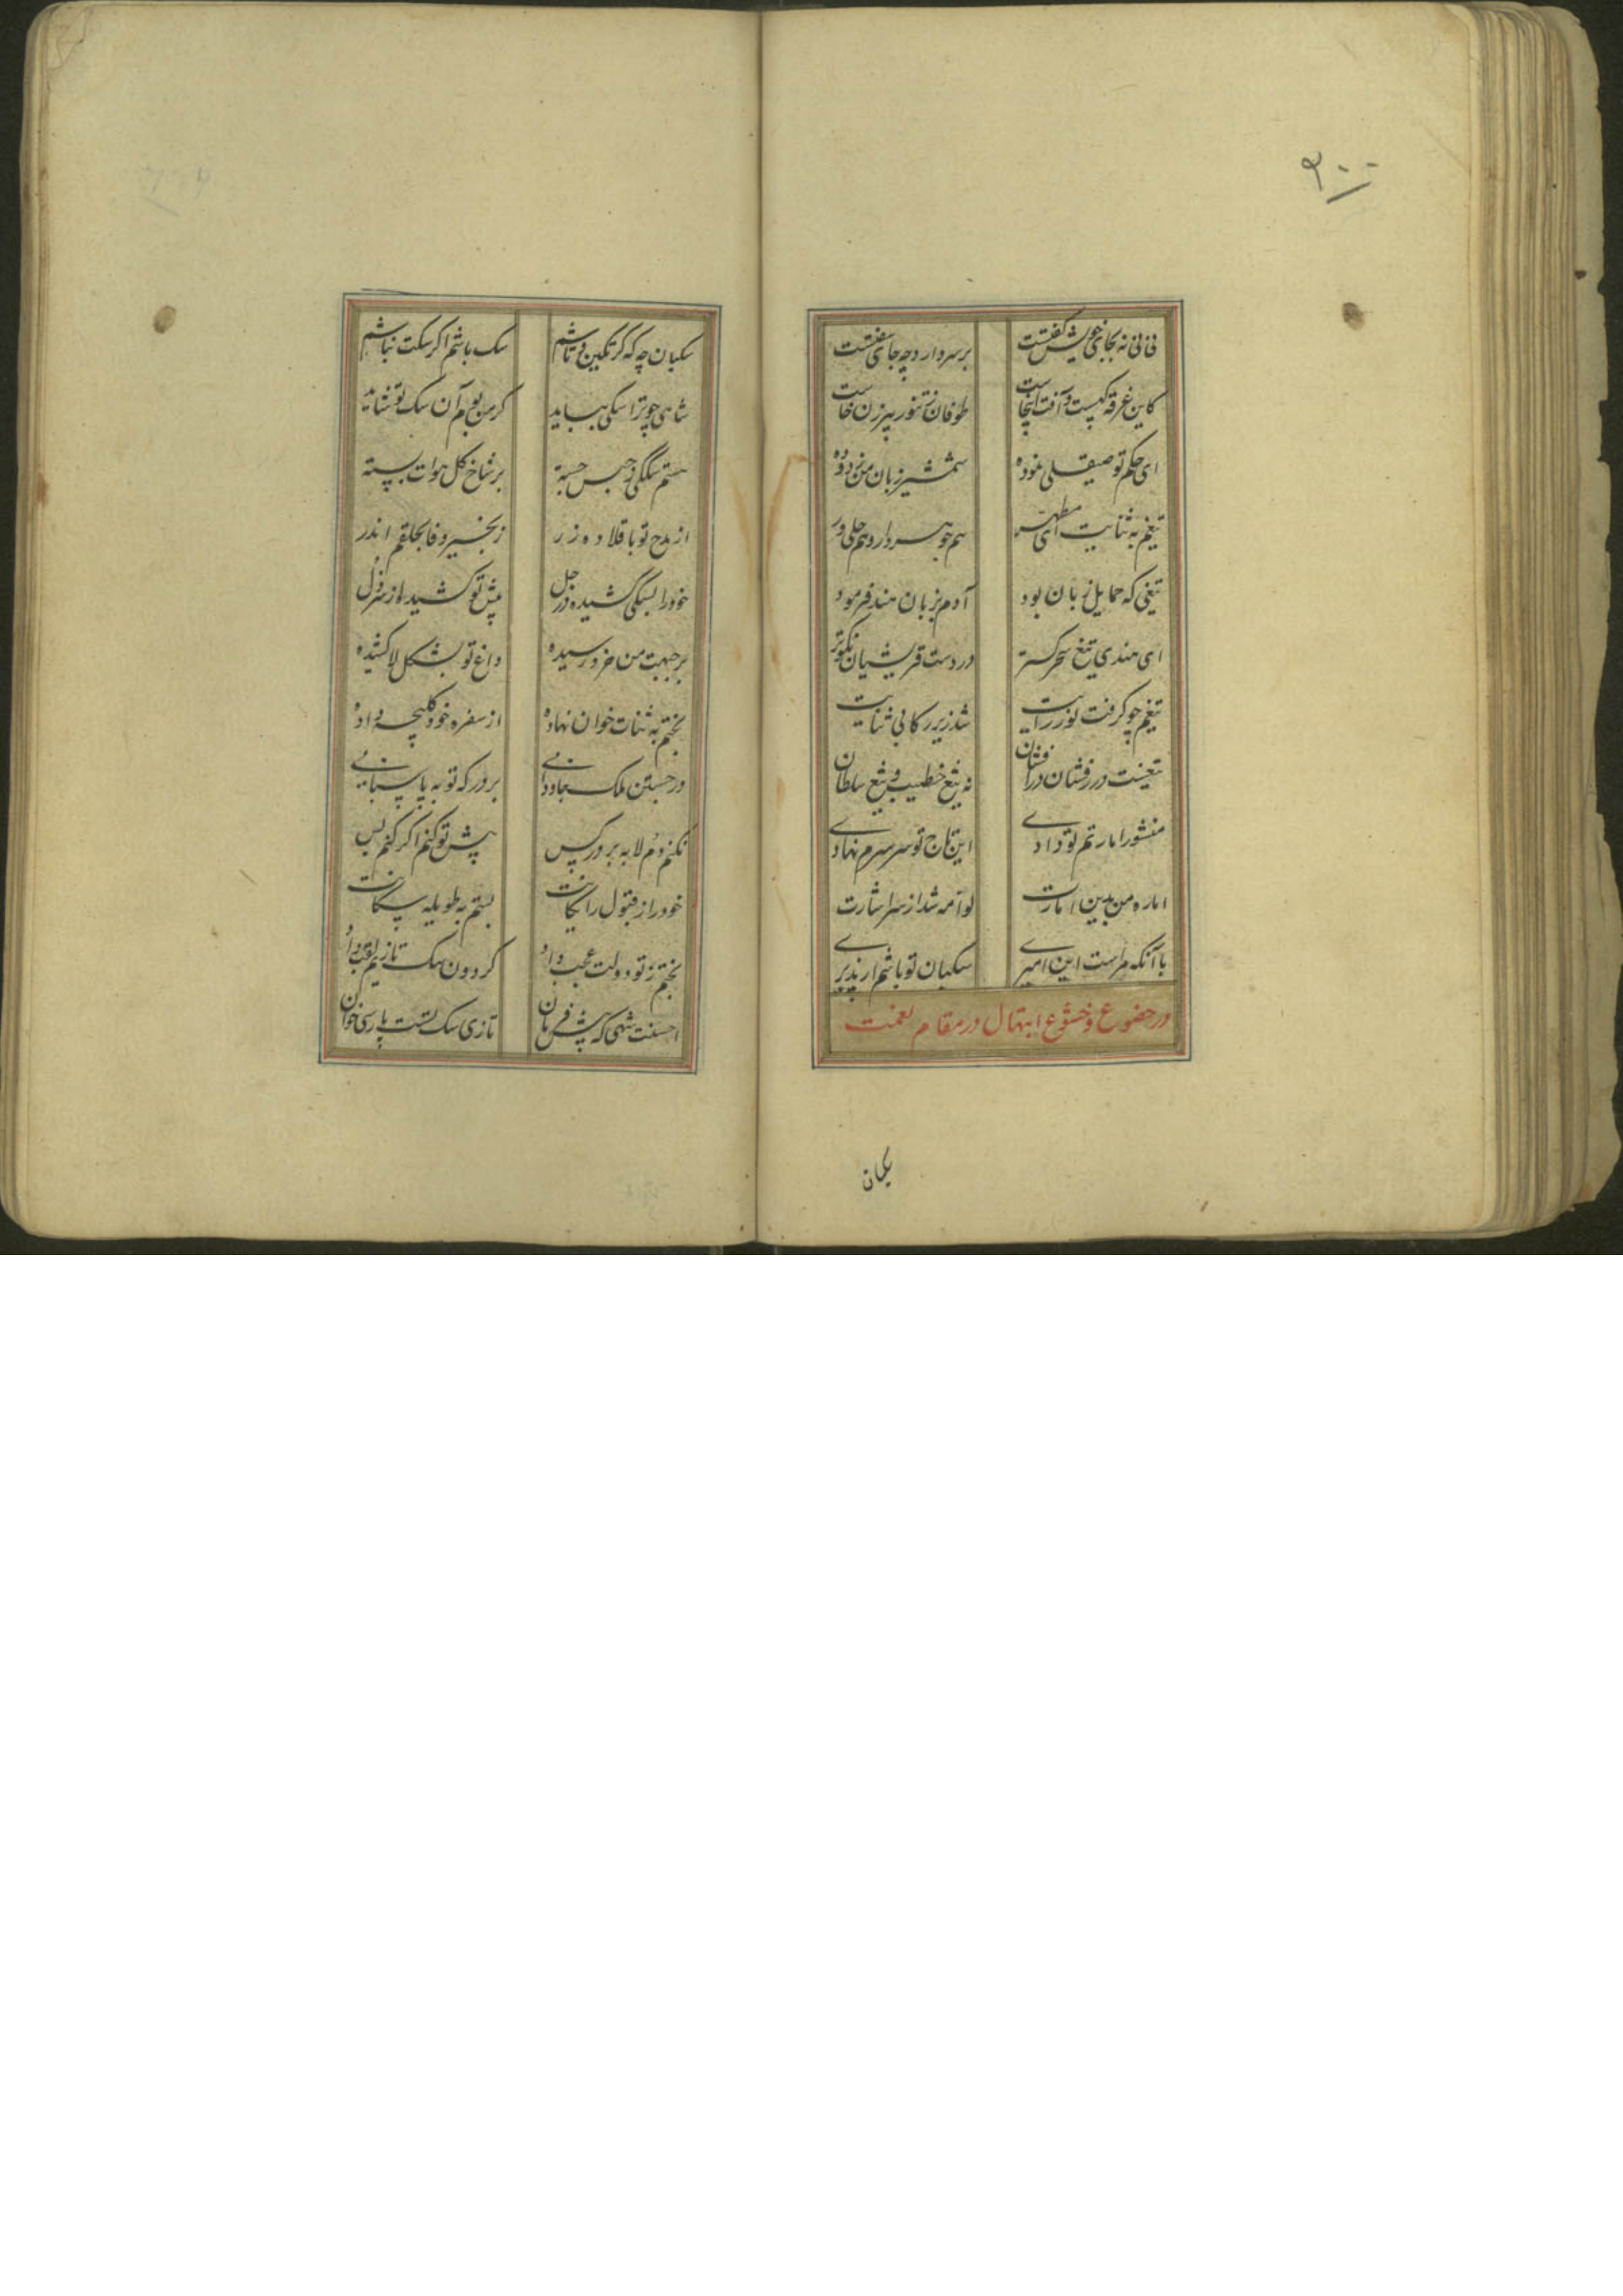 نی نی نه بجای خویش گفتست
بر سر دار و چه جای سفتست
کاین غرقه کیست و آفت اینجاست
طوفان ز تنور پیرزن خاست
ای حکم تو صیقلی نموده
شمشیر زبان من زدوده
تیغم به ثنایت ای مطهر
هم جوهر دار و هم حلی ور
تیغی که حمایل زبان بود
آدم بزبان هند فرمود
ای هندی تیغ سحر گستر
در دست قریشیان نکوتر
تیغم چو گرفت نور رایت
شد زیر رکابی ثنایت
تیغیست درفشان درافشان
نه تیغ خطیب و تیغ سلطان
منشور امارتم تو دادی
این تاج تو بر سرم نهادی
اماره من بدین امارت
لوامه شد از سر اشارت
با آنکه مراست این امیری
سکبان تو باشم ار پذیری
در خضوع و خشوع ابتهال در مقام نعمت
سکبان
سکبان چه که گر تکین و تاشم
سک باشم اگر سکت نباشم
شاهی چو ترا سکی بباید
گر من بوم آن سک تو شاید
هستم سککی ز حبس جسته
بر شاخ گل هوات بسته
از مدح تو با قلاده زر
زنجیر وفا بحلقم اندر
خود را بسکی کشیده در جل
پیش تو کشیده از سر ذل
بر جبهت من خرد رسیده
داغ تو بشکل لا کشیده
بختم به ثنات خوان نهاده
از سفره خود کلیچه داده
در جستن ملک جاودانی
بر درکه تو به پاسبانی
نکنم دم لابه بر در کس
پیش تو کنم اگر کنم بس
خود را ز قبول رایکانت
بستم به طویله سکانت
بختم ز تو دولت عجب داد
گردون سک تازیم لقب داد
احسنت شهی که پیش فرمان
تازی سک تست پارسی خوان